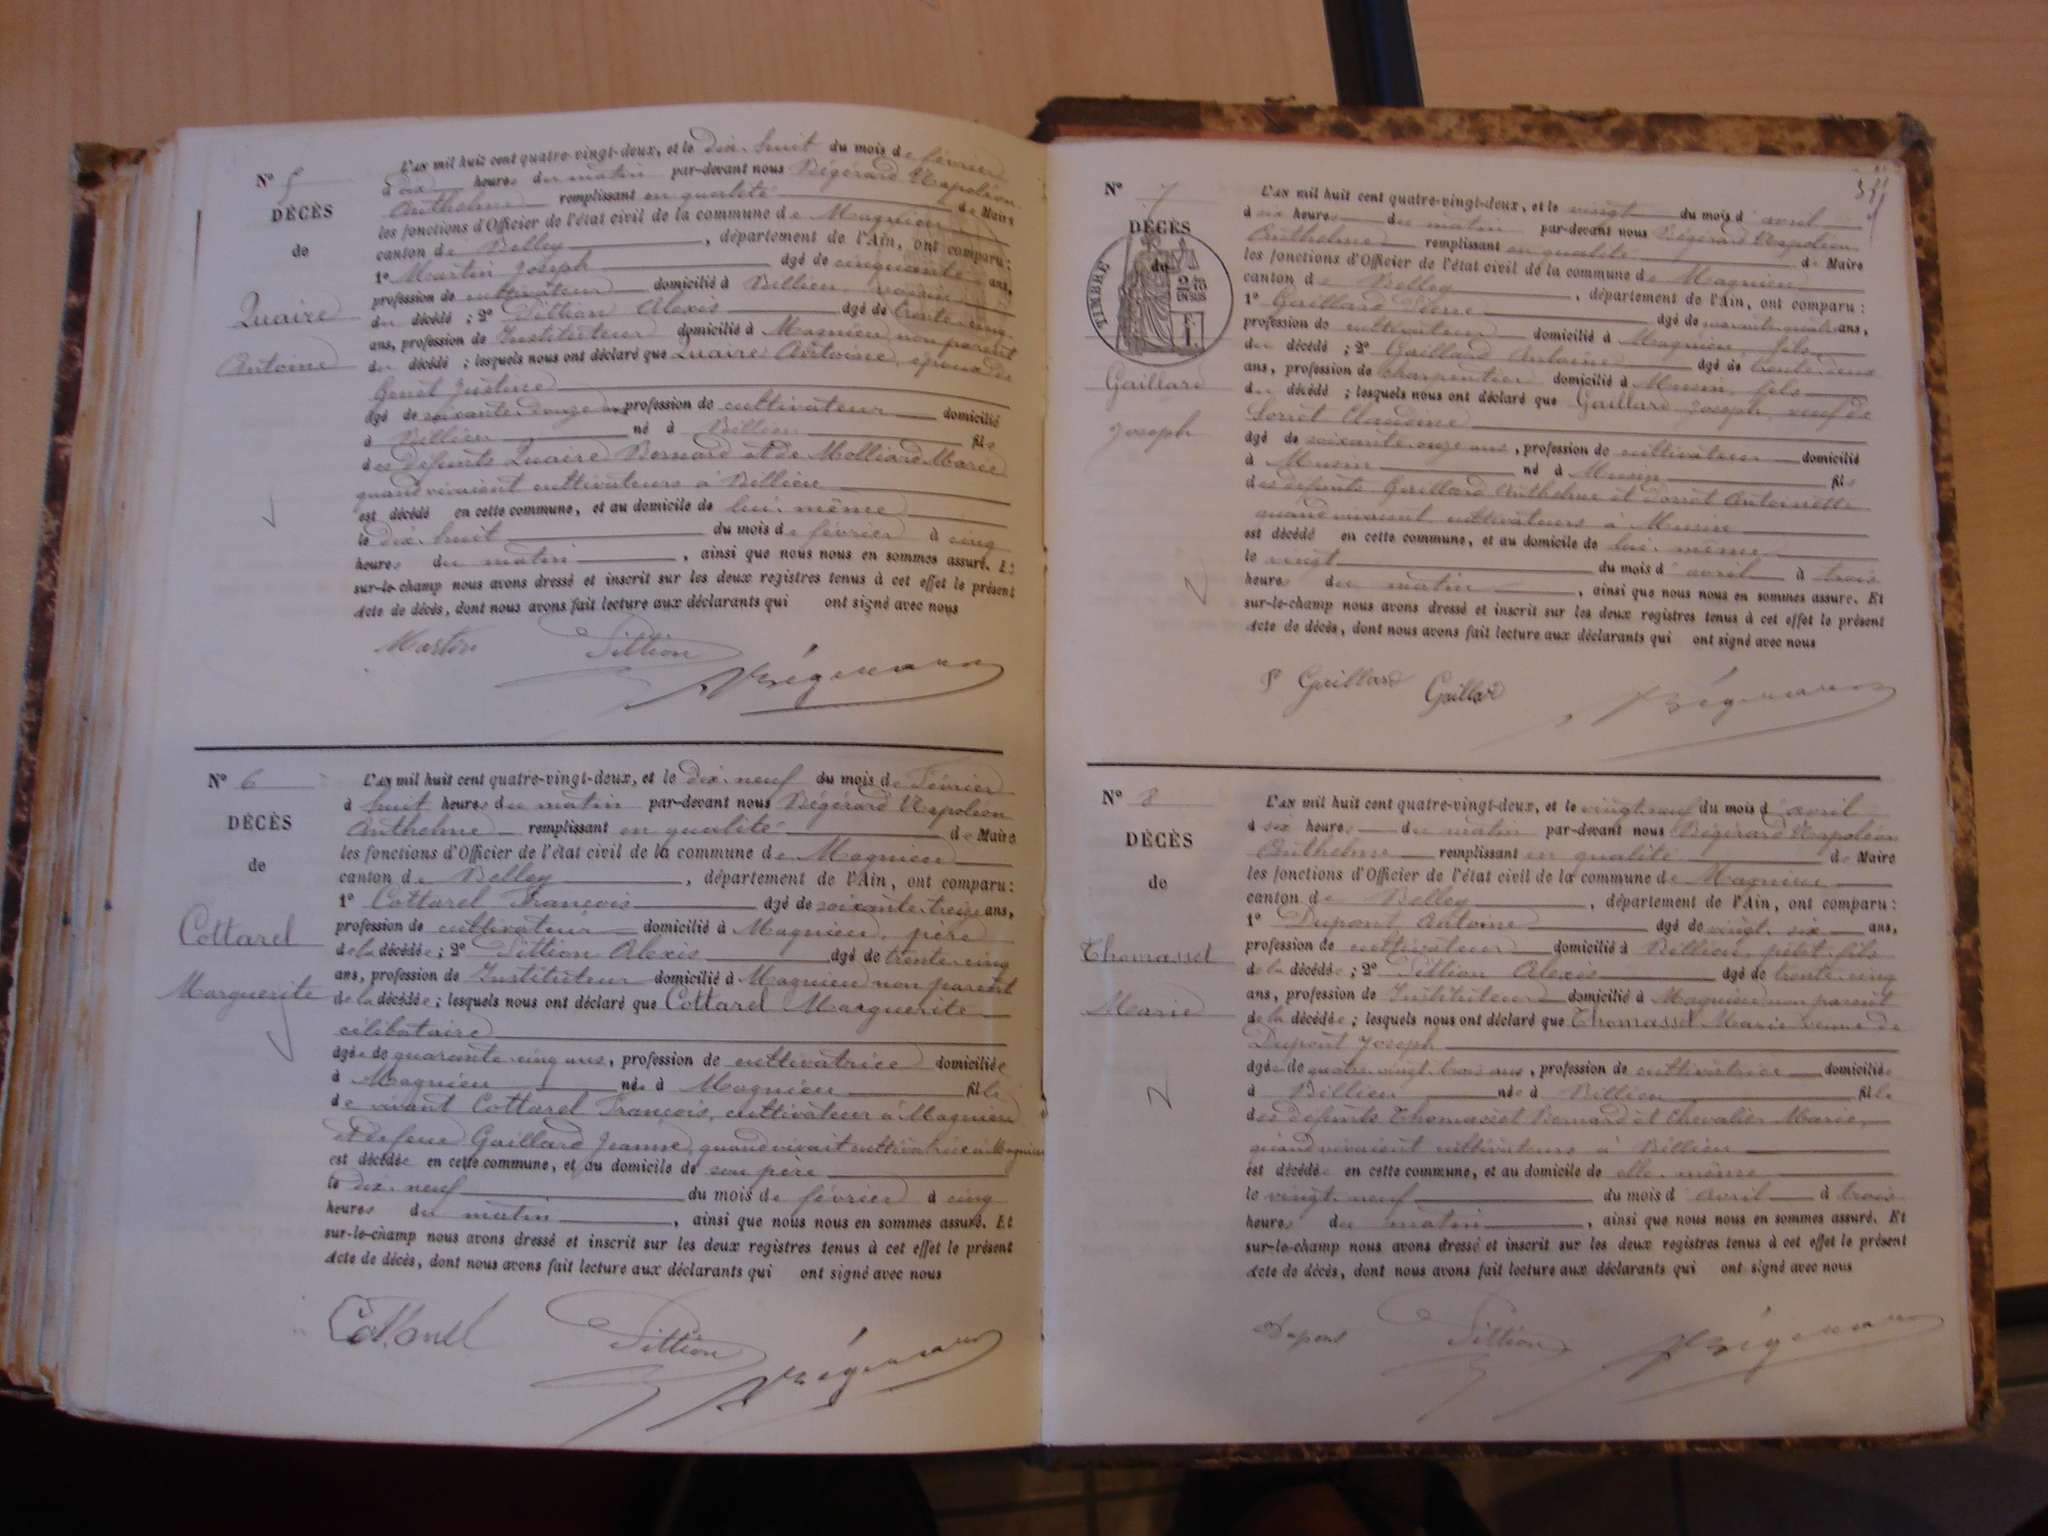 N° 5
DÉCÈS
de
Quaire
Antoine
L'AN mil huit cent quatre-vingt-deux, et le dix-huit du mois de février
à dix heures du matin par-devant nous Bégérard Napoléon
Anthelme remplissant en qualité de Maire
les fonctions d'Officier de l'état civil de la commune de Magnieu
canton de Belley, département de l'Ain, ont comparu :
1° Martin Joseph âgé de cinquante ans,
profession de cultivateur domicilié à Billieu, voisin
du décédé ; 2° Sittion Alexis âgé de trente-cinq
ans, profession de Instituteur domicilié à Magnieu non parent
du décédé ; lesquels nous ont déclaré que Quaire Antoine, époux de
Genet Justine
âgé de soixante-douze ans profession de cultivateur domicilié
à Billieu né à Billieu fils
des défunts Quaire Bernard et de Molliard Marie
quand vivaient cultivateurs à Billieu
est décédé en cette commune, et au domicile de lui-même
le dix-huit du mois de février à cinq
heures du matin, ainsi que nous nous en sommes assuré. Et
sur-le-champ nous avons dressé et inscrit sur les deux registres tenus à cet effet le présent
Acte de décès, dont nous avons fait lecture aux déclarants qui ont signé avec nous
Martin Sittion Bégérard
N° 6
DÉCÈS
de
Cottarel
Marguerite
L'AN mil huit cent quatre-vingt-deux, et le dix-neuf du mois de Février
à huit heures du matin par-devant nous Bégérard Napoléon
Anthelme remplissant en qualité de Maire
les fonctions d'Officier de l'état civil de la commune de Magnieu
canton de Belley, département de l'Ain, ont comparu :
1° Cottarel François âgé de soixante-treize ans,
profession de cultivateur domicilié à Magnieu, père
de la décédée ; 2° Sittion Alexis âgé de trente-cinq
ans, profession de Instituteur domicilié à Magnieu non parent
de la décédée ; lesquels nous ont déclaré que Cottarel Marguerite
célibataire
âgée de quarante-cinq ans, profession de cultivatrice domiciliée
à Magnieu née à Magnieu fille
de vivant Cottarel François, cultivateur à Magnieu
et défeue Gaillard Jeanne, quand vivait cultivatrice à Magnieu
est décédée en cette commune, et au domicile de son père
le dix-neuf du mois de février à cinq
heures du matin, ainsi que nous nous en sommes assuré. Et
sur-le-champ nous avons dressé et inscrit sur les deux registres tenus à cet effet le présent
Acte de décès, dont nous avons fait lecture aux déclarants qui ont signé avec nous
Cottarel Sittion Bégérard
N° 7
DÉCÈS
de
TIMBRE
2/10 EN SUS
1 F.
Gaillard
Joseph
L'AN mil huit cent quatre-vingt-deux, et le vingt du mois d'avril
à six heures du matin par-devant nous Bégérard Napoléon
Anthelme remplissant en qualité de Maire
les fonctions d'Officier de l'état civil de la commune de Magnieu
canton de Belley, département de l'Ain, ont comparu :
1° Gaillard Pierre âgé de quarante-quatre ans,
profession de cultivateur domicilié à Magnieu, fils
du décédé ; 2° Gaillard Antoine âgé de trente-deux
ans, profession de charpentier domicilié à Musin, fils
du décédé ; lesquels nous ont déclaré que Gaillard Joseph, veuf de
Sorret Claudine
âgé de soixante-onze ans, profession de cultivateur domicilié
à Musin né à Musin fils
des défunts Gaillard Anthelme et Dorret Antoinette
quand vivaient cultivateurs à Musin
est décédé en cette commune, et au domicile de lui-même
le vingt du mois d'avril à trois
heures du matin, ainsi que nous nous en sommes assuré. Et
sur-le-champ nous avons dressé et inscrit sur les deux registres tenus à cet effet le présent
Acte de décès, dont nous avons fait lecture aux déclarants qui ont signé avec nous
P Gaillard Gaillard Bégérard
N° 8
DÉCÈS
de
Thomasset
Marie
L'AN mil huit cent quatre-vingt-deux, et le vingt-neuf du mois d'avril
à six heures du matin par-devant nous Bégérard Napoléon
Anthelme remplissant en qualité de Maire
les fonctions d'Officier de l'état civil de la commune de Magnieu
canton de Belley, département de l'Ain, ont comparu :
1° Dupont Antoine âgé de vingt-six ans,
profession de cultivateur domicilié à Billieu, petit-fils
de la décédée ; 2° Sittion Alexis âgé de trente-cinq
ans, profession de Instituteur domicilié à Magnieu non parent
de la décédée ; lesquels nous ont déclaré que Thomasset Marie veuve de
Dupont Joseph
âgée de quatre-vingt-trois ans, profession de cultivatrice domiciliée
à Billieu née à Billieu fille
des défunts Thomasset Bernard et Chevalier Marie,
quand vivaient cultivateurs à Billieu
est décédée en cette commune, et au domicile de elle-même
le vingt-neuf du mois d'avril à trois
heures du matin, ainsi que nous nous en sommes assuré. Et
sur-le-champ nous avons dressé et inscrit sur les deux registres tenus à cet effet le présent
Acte de décès, dont nous avons fait lecture aux déclarants qui ont signé avec nous
Dupont Sittion Bégérard